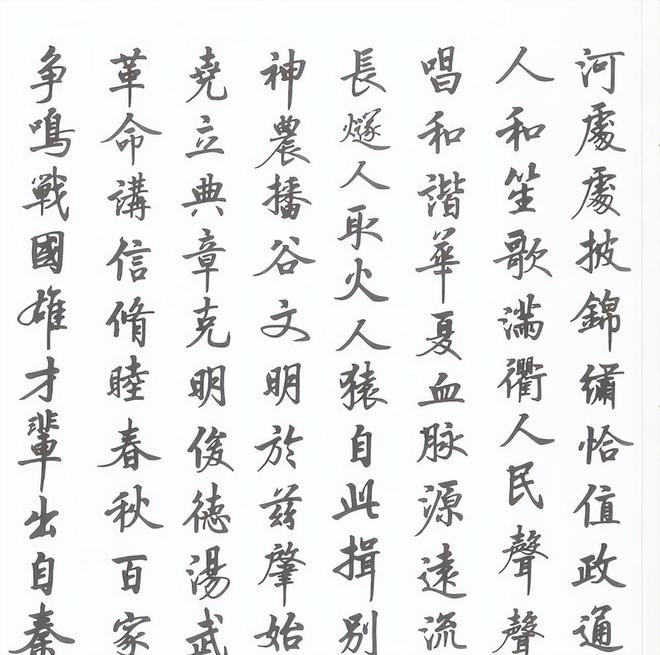 河處處披錦繡恰值政通
人和笙歌滿衢人民聲聲
唱和諧華夏血脉源遠流
長燧人取火人猿自此揖別
神農播谷文明於茲肇始
堯立典章克明俊德湯武
革命講信脩睦春秋百家
争鳴戰國雄才輩出自秦